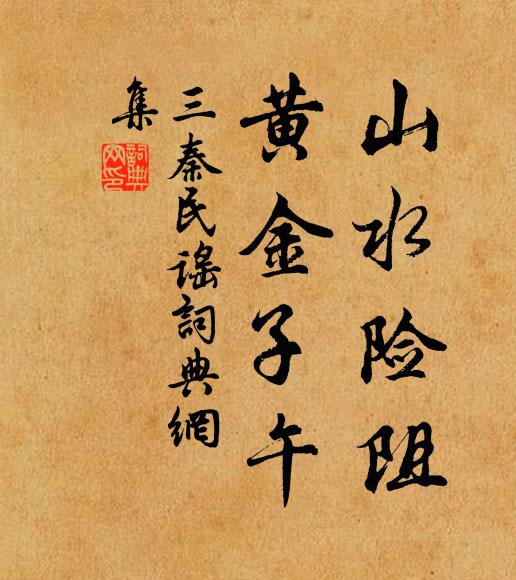 山水险阻
黄金子午
三秦民谣詞典網
集
詞典网印